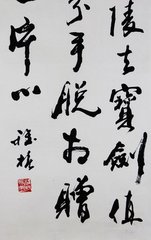 陵去寶劍值
分手脫相贈
一片心